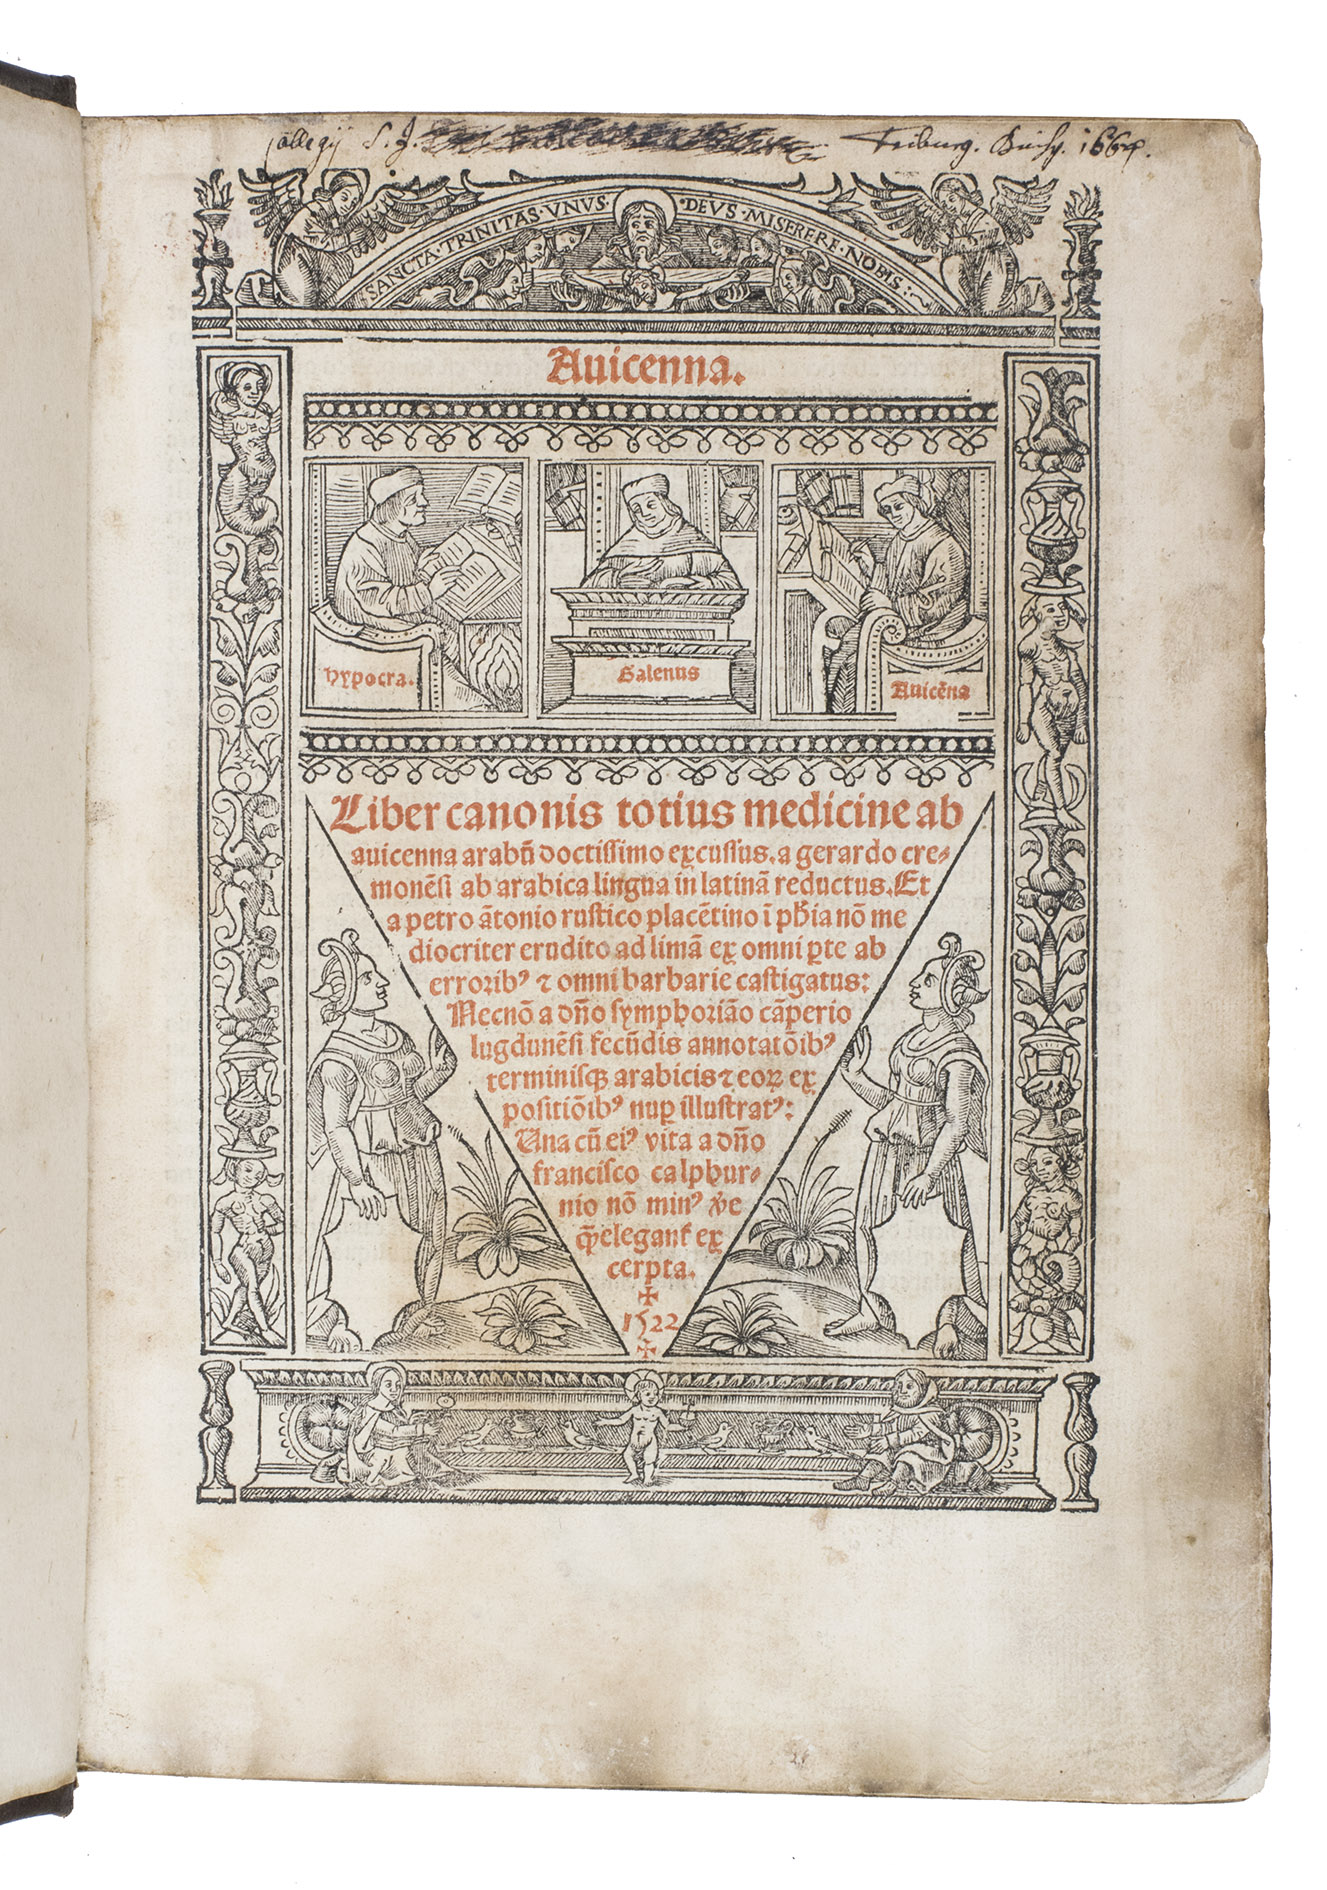 Collegij S. J. Friburg. Brisg. 1664.
SANCTA · TRINITAS · VNVS · DEVS · MISERERE · NOBIS :
Auicenna.
hypocra.
Galenus
Auicēna
Liber canonis totius medicine ab
auicenna arabū doctissimo excussus. a gerardo cre-
monēsi ab arabica lingua in latinā reductus. Et
a petro ātonio rustico placētino ī phīa nō me
diocriter erudito ad limā ex omni ꝑte ab
erroribꝰ ⁊ omni barbarie castigatus:
Necnō a dño symphoriāo cāperio
lugdunēsi fecūdis annotatōibꝰ
terminisqꝫ arabicis ⁊ eoꝝ ex
positiōibꝰ nuꝑ illustratꝰ:
Una cū eiꝰ vita a dño
francisco calphur-
nio nō minꝰ v̄e
q̄ꝫ elegant̄ ex
cerpta.
1522